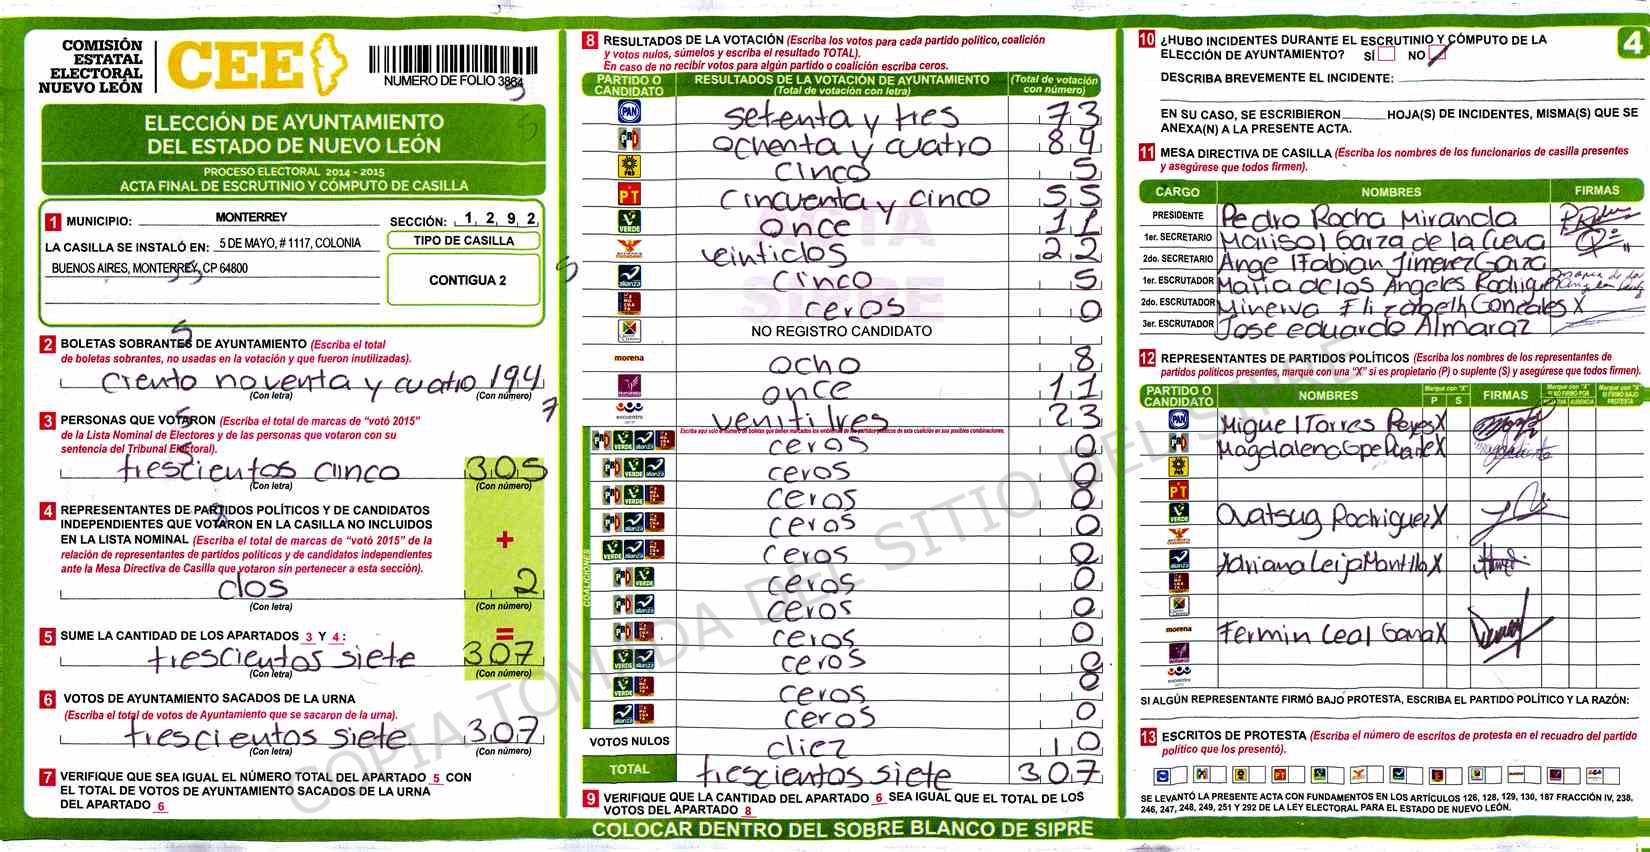 COMISIÓN
ESTATAL
ELECTORAL
NUEVO LEÓN
CEE
NUMERO DE FOLIO 3864
ELECCIÓN DE AYUNTAMIENTO
DEL ESTADO DE NUEVO LEÓN
PROCESO ELECTORAL 2014 - 2015
ACTA FINAL DE ESCRUTINIO Y CÓMPUTO DE CASILLA
1 MUNICIPIO: MONTERREY SECCIÓN: 1 2 9 2
LA CASILLA SE INSTALÓ EN: 5 DE MAYO, # 1117, COLONIA
BUENOS AIRES, MONTERREY, CP 64800
TIPO DE CASILLA
CONTIGUA 2
2 BOLETAS SOBRANTES DE AYUNTAMIENTO (Escriba el total
de boletas sobrantes, no usadas en la votación y que fueron inutilizadas).
ciento noventa y cuatro 194
(Con letra) (Con número)
3 PERSONAS QUE VOTARON (Escriba el total de marcas de "votó 2015"
de la Lista Nominal de Electores y de las personas que votaron con su
sentencia del Tribunal Electoral).
trescientos cinco 305
(Con letra) (Con número)
4 REPRESENTANTES DE PARTIDOS POLÍTICOS Y DE CANDIDATOS
INDEPENDIENTES QUE VOTARON EN LA CASILLA NO INCLUIDOS
EN LA LISTA NOMINAL (Escriba el total de marcas de "votó 2015" de la
relación de representantes de partidos políticos y de candidatos independientes
ante la Mesa Directiva de Casilla que votaron sin pertenecer a esta sección).
+
dos 2
(Con letra) (Con número)
5 SUME LA CANTIDAD DE LOS APARTADOS 3 Y 4:
=
trescientos siete 307
(Con letra) (Con número)
6 VOTOS DE AYUNTAMIENTO SACADOS DE LA URNA
(Escriba el total de votos de Ayuntamiento que se sacaron de la urna).
trescientos siete 307
(Con letra) (Con número)
7 VERIFIQUE QUE SEA IGUAL EL NÚMERO TOTAL DEL APARTADO 5 CON
EL TOTAL DE VOTOS DE AYUNTAMIENTO SACADOS DE LA URNA
DEL APARTADO 6
8 RESULTADOS DE LA VOTACIÓN (Escriba los votos para cada partido político, coalición
y votos nulos, súmelos y escriba el resultado TOTAL).
En caso de no recibir votos para algún partido o coalición escriba ceros.
PARTIDO O CANDIDATO RESULTADOS DE LA VOTACIÓN DE AYUNTAMIENTO (Total de votación con letra) (Total de votación con número)
PAN setenta y tres 73
ochenta y cuatro 84
PRD cinco 5
PT cincuenta y cinco 55
VERDE once 11
veintidos 22
alianza cinco 5
ceros 0
NO REGISTRO CANDIDATO
morena ocho 8
once 11
encuentro ventitres 23
COALICIONES
ceros 0
ceros 0
ceros 0
ceros 0
ceros 0
ceros 0
ceros 0
ceros 0
ceros 0
ceros 0
ceros 0
VOTOS NULOS diez 10
TOTAL trescientos siete 307
9 VERIFIQUE QUE LA CANTIDAD DEL APARTADO 6 SEA IGUAL QUE EL TOTAL DE LOS
VOTOS DEL APARTADO 8
COLOCAR DENTRO DEL SOBRE BLANCO DE SIPRE
ACTA
SIPRE
COPIA TOMADA DEL SITIO DEL SIPRE
10 ¿HUBO INCIDENTES DURANTE EL ESCRUTINIO Y CÓMPUTO DE LA
ELECCIÓN DE AYUNTAMIENTO? SÍ NO
4
DESCRIBA BREVEMENTE EL INCIDENTE:
EN SU CASO, SE ESCRIBIERON HOJA(S) DE INCIDENTES, MISMA(S) QUE SE
ANEXA(N) A LA PRESENTE ACTA.
11 MESA DIRECTIVA DE CASILLA (Escriba los nombres de los funcionarios de casilla presentes
y asegúrese que todos firmen).
CARGO NOMBRES FIRMAS
PRESIDENTE Pedro Rocha Miranda
1er. SECRETARIO Marisol Garza de la Cueva
2do. SECRETARIO Angel Fabian Jimenez Garza
1er. ESCRUTADOR Maria de los Angeles Rodriguez
2do. ESCRUTADOR Minerva Elizabeth Gonzales X
3er. ESCRUTADOR Jose eduardo Almaraz
12 REPRESENTANTES DE PARTIDOS POLÍTICOS (Escriba los nombres de los representantes de
partidos políticos presentes, marque con una "X" si es propietario (P) o suplente (S) y asegúrese que todos firmen).
PARTIDO O CANDIDATO NOMBRES Marque con "X" P S FIRMAS
PAN Miguel Torres Reyes X
Magdalena X
PRD
PT
VERDE Rodriguez X
alianza Adriana Leija Montilla X
morena Fermin Leal X
encuentro
SI ALGÚN REPRESENTANTE FIRMÓ BAJO PROTESTA, ESCRIBA EL PARTIDO POLÍTICO Y LA RAZÓN:
13 ESCRITOS DE PROTESTA (Escriba el número de escritos de protesta en el recuadro del partido
político que los presentó).
SE LEVANTÓ LA PRESENTE ACTA CON FUNDAMENTOS EN LOS ARTÍCULOS 126, 128, 129, 130, 187 FRACCIÓN IV, 238,
246, 247, 248, 249, 251 Y 292 DE LA LEY ELECTORAL PARA EL ESTADO DE NUEVO LEÓN.